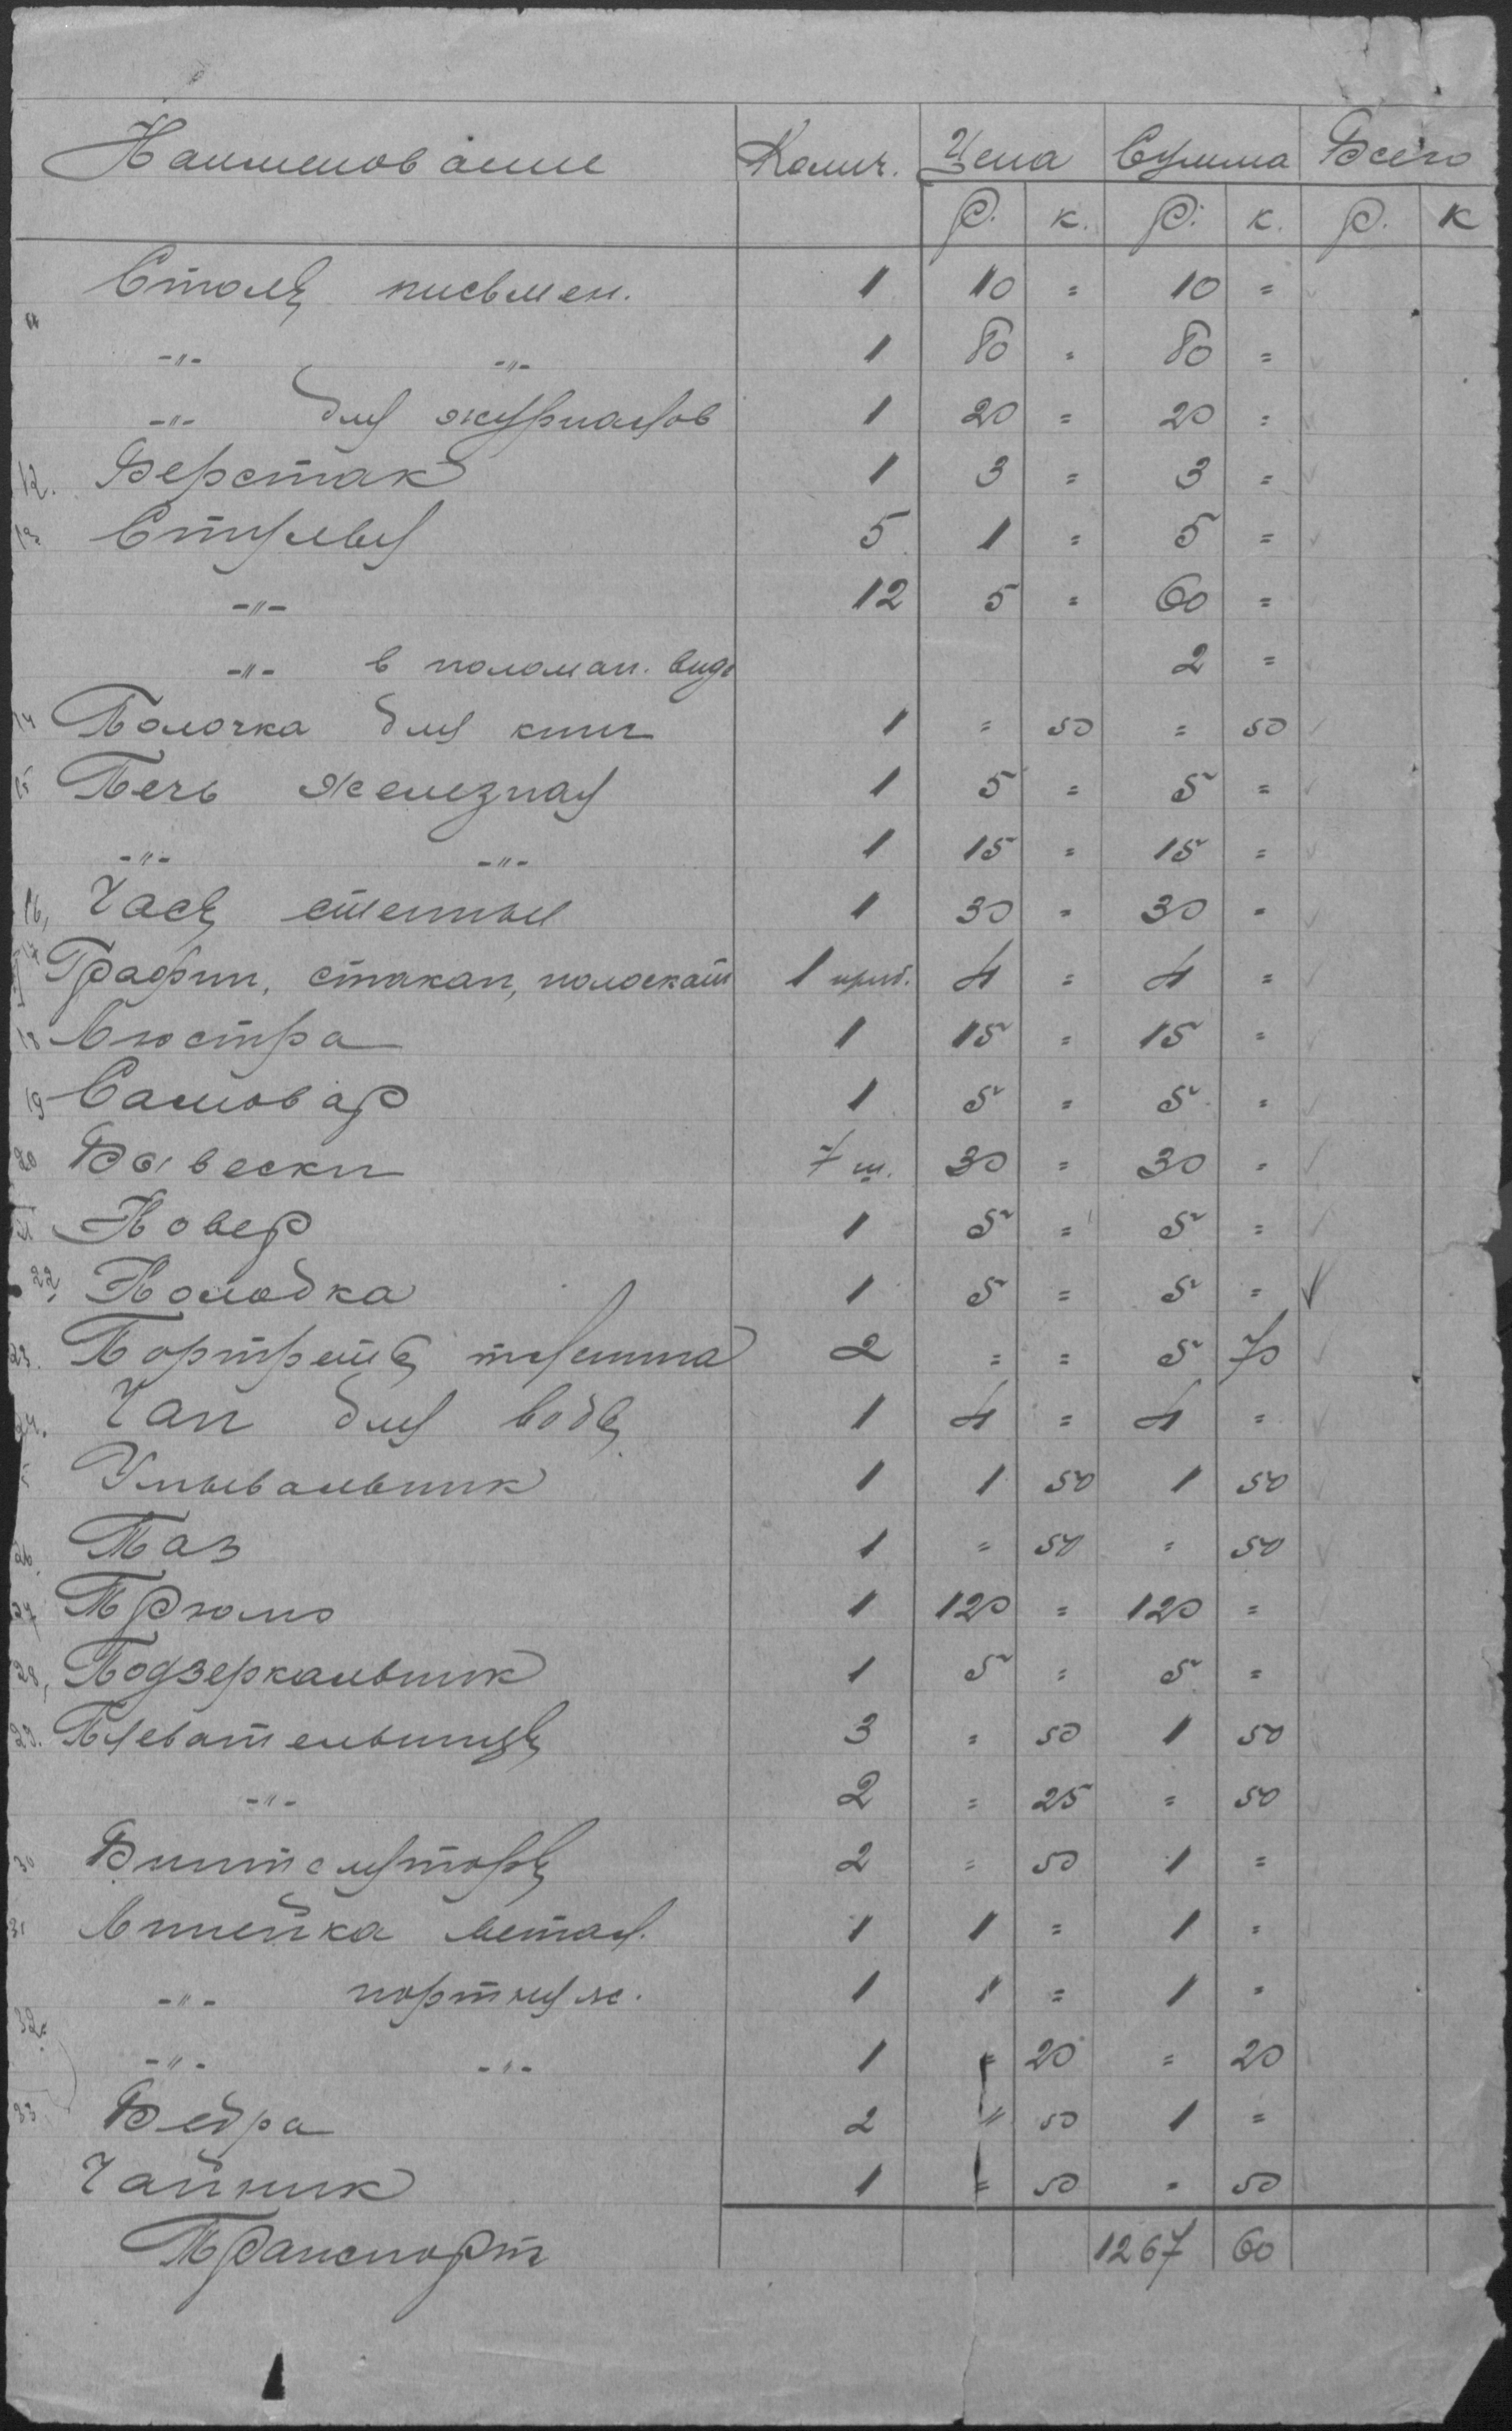 Наименование Колич. Цена Сумма Всего
Р. к. Р. к. Р. к
Столы письмен. 1 10 = 10 =
" -"- -"- 1 80 = 80 =
-"- для журналов 1 20 = 20 =
12. Верстак 1 3 = 3 =
13 Стулья 5 1 = 5 =
-"- 12 5 = 60 =
-"- в поломан. виде 2 =
14 Полочка для книг 1 = 50 = 50
15 Печь железная 1 5 = 5 =
-"- -"- 1 15 = 15 =
16, Часы стенные 1 30 = 30 =
17 Графин, стакан, полоскат 1 приб. 4 = 4 =
18 Люстра 1 15 = 15 =
19 Самовар 1 5 = 5 =
20 Вывески 7 ш. 30 = 30 =
21 Ковер 1 5 = 5 =
22, Колодка 1 5 = 5 =
23. Портреты 2 = = 5 70
24. Чан для воды 1 4 = 4 =
Умывальник 1 1 50 1 50
26. Таз 1 = 50 = 50
27 Трюмо 1 120 = 120 =
28, Подзеркальник 1 5 = 5 =
29. Плевательницы 3 = 50 1 50
-"- 2 = 25 = 50
30 2 = 50 1 =
31 Линейка метал. 1 1 = 1 =
-"- портняж. 1 1 = 1 =
32. -"- -"- 1 = 20 = 20
33 Ведра 2 " 50 1 =
Чайник 1 = 50 = 50
Транспорт 1267 60